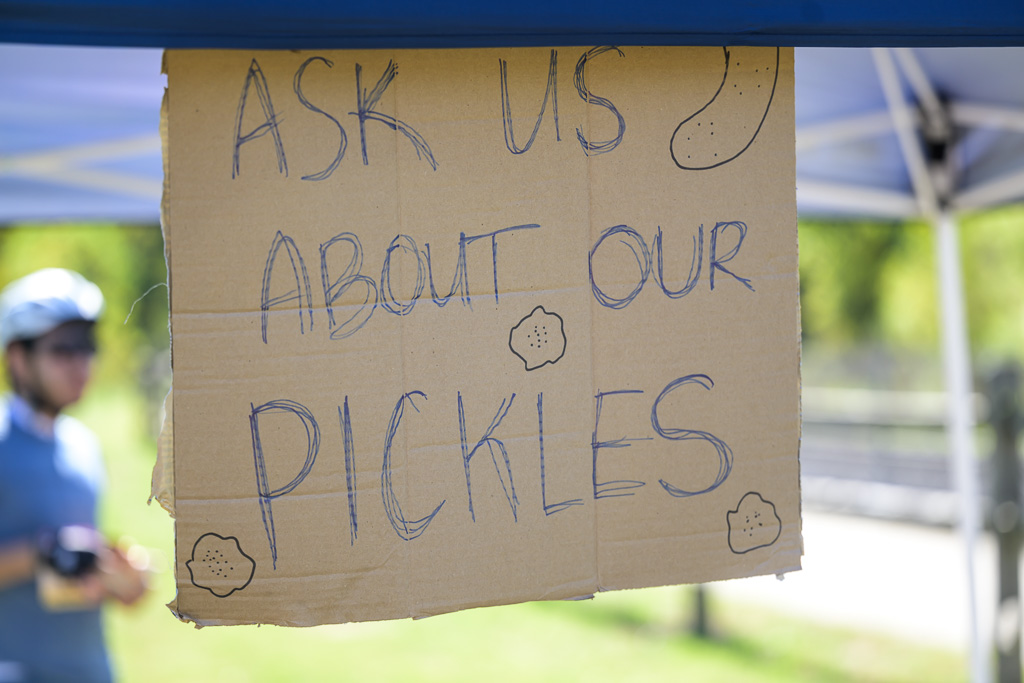 ASK US
ABOUT OUR
PICKLES